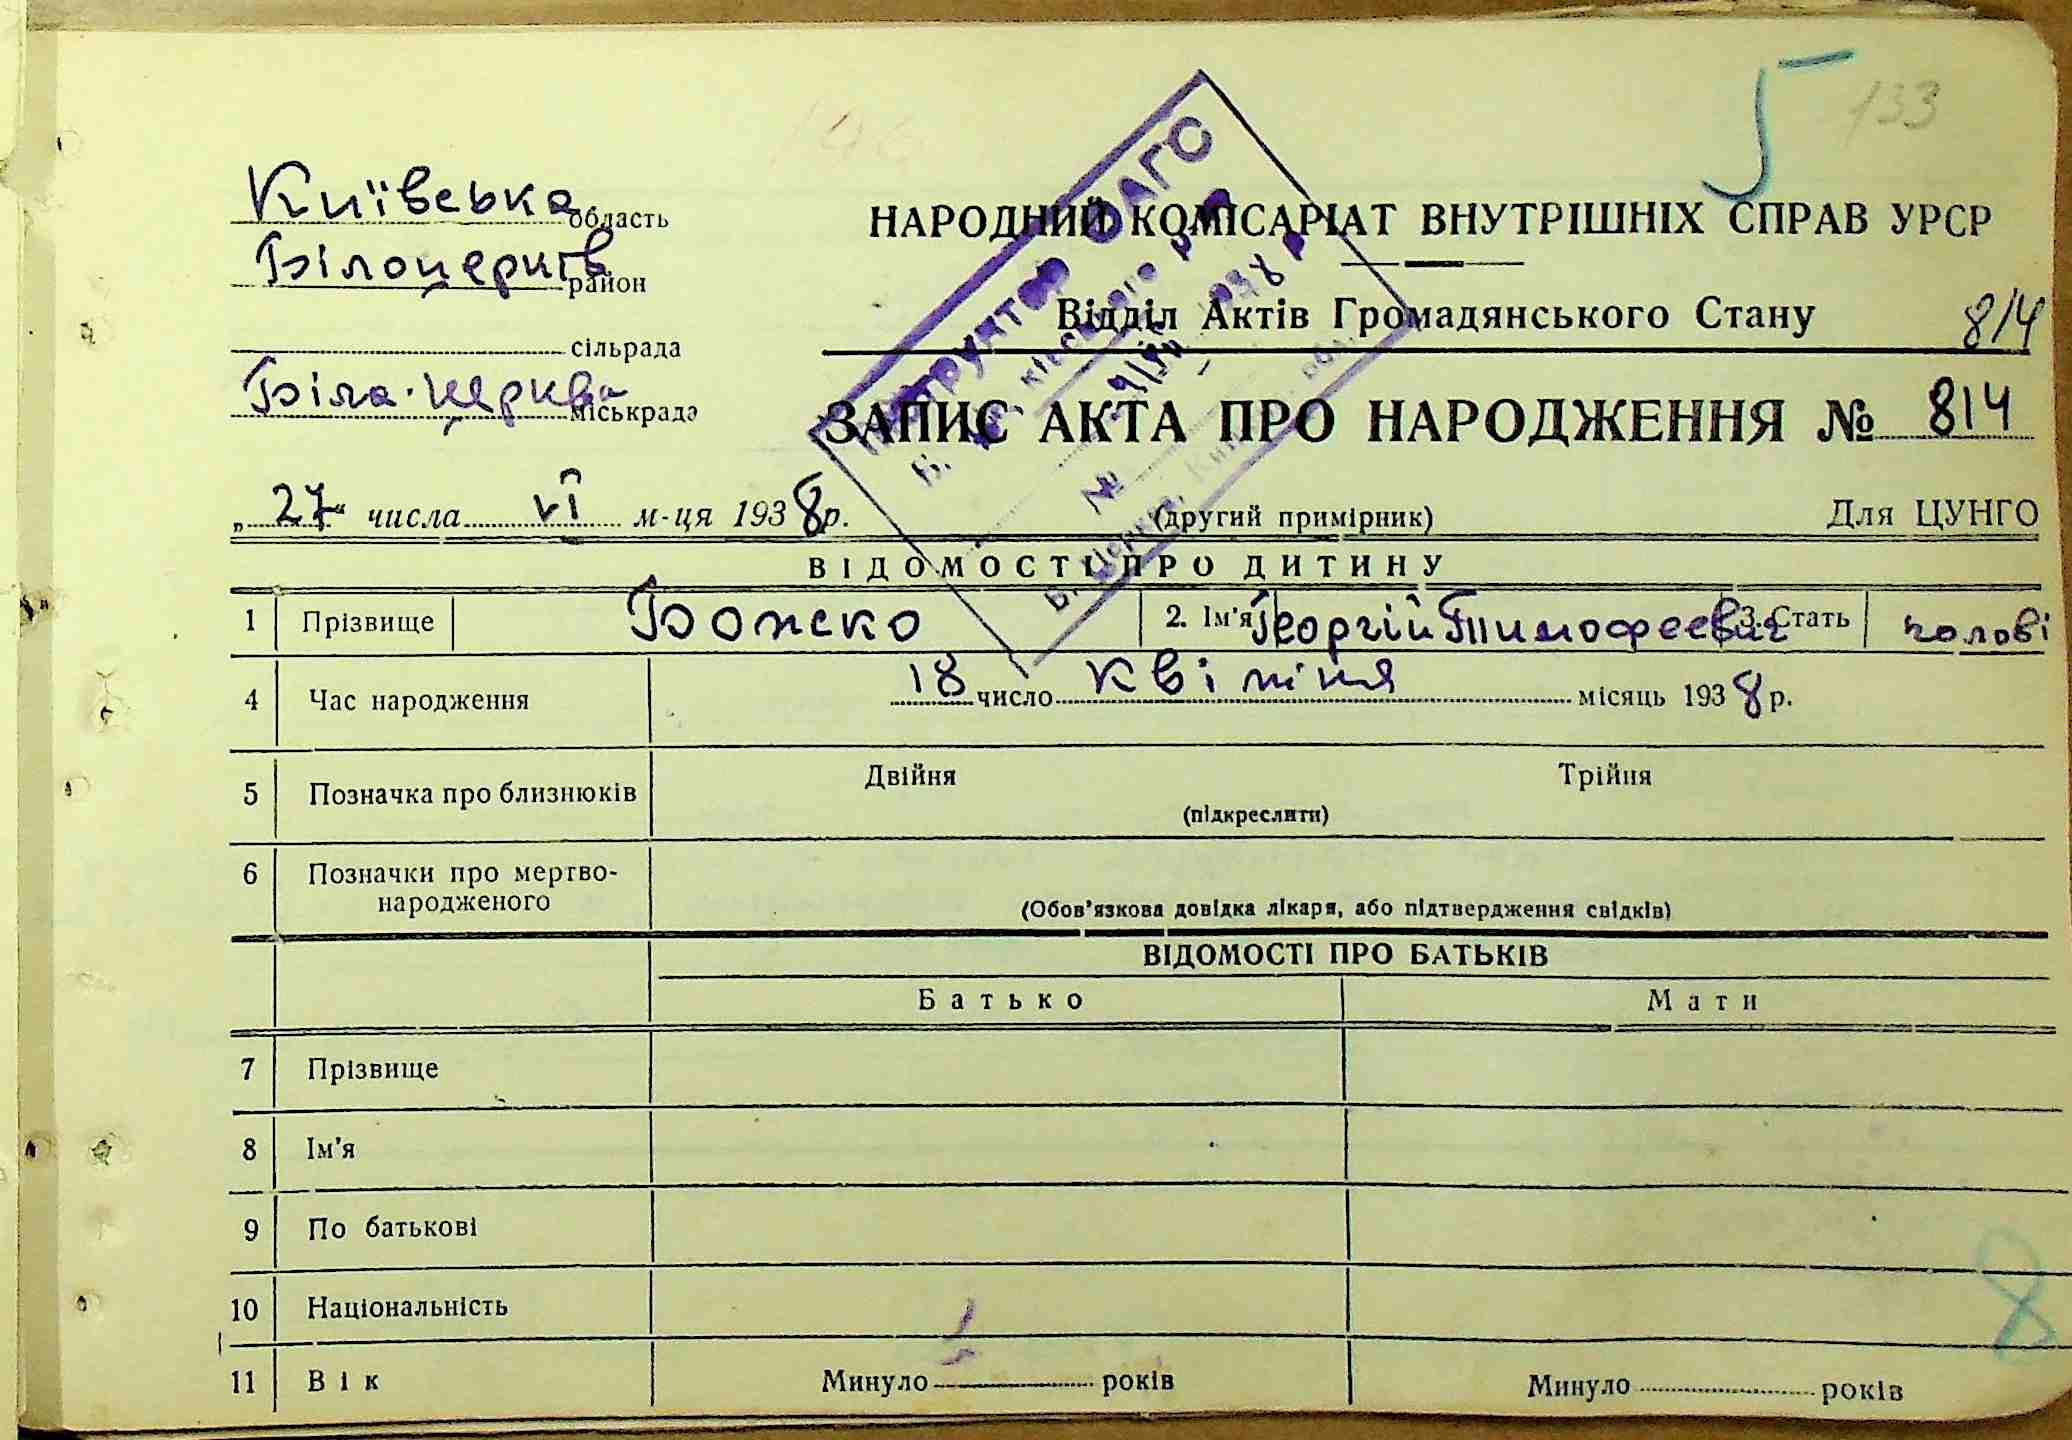 5 133
Київська область
НАРОДНИЙ КОМІСАРІАТ ВНУТРІШНІХ СПРАВ УРСР
Білоцерків район
Відділ Актів Громадянського Стану 814
сільрада
Біла-Церква міськрада
ЗАПИС АКТА ПРО НАРОДЖЕННЯ № 814
„27“ числа VI м-ця 1938 р. (другий примірник) Для ЦУНГО
ВІДОМОСТІ ПРО ДИТИНУ
1 Прізвище Божско 2. Ім'я Георгій Тимофеевич 3. Стать чолові
4 Час народження 18 число квітня місяць 1938 р.
5 Позначка про близнюків Двійня Трійня
(підкреслити)
6 Позначки про мертво-
народженого
(Обов'язкова довідка лікаря, або підтвердження свідків)
ВІДОМОСТІ ПРО БАТЬКІВ
Батько Мати
7 Прізвище
8 Ім'я
9 По батькові
10 Національність
8
11 Вік Минуло років Минуло років